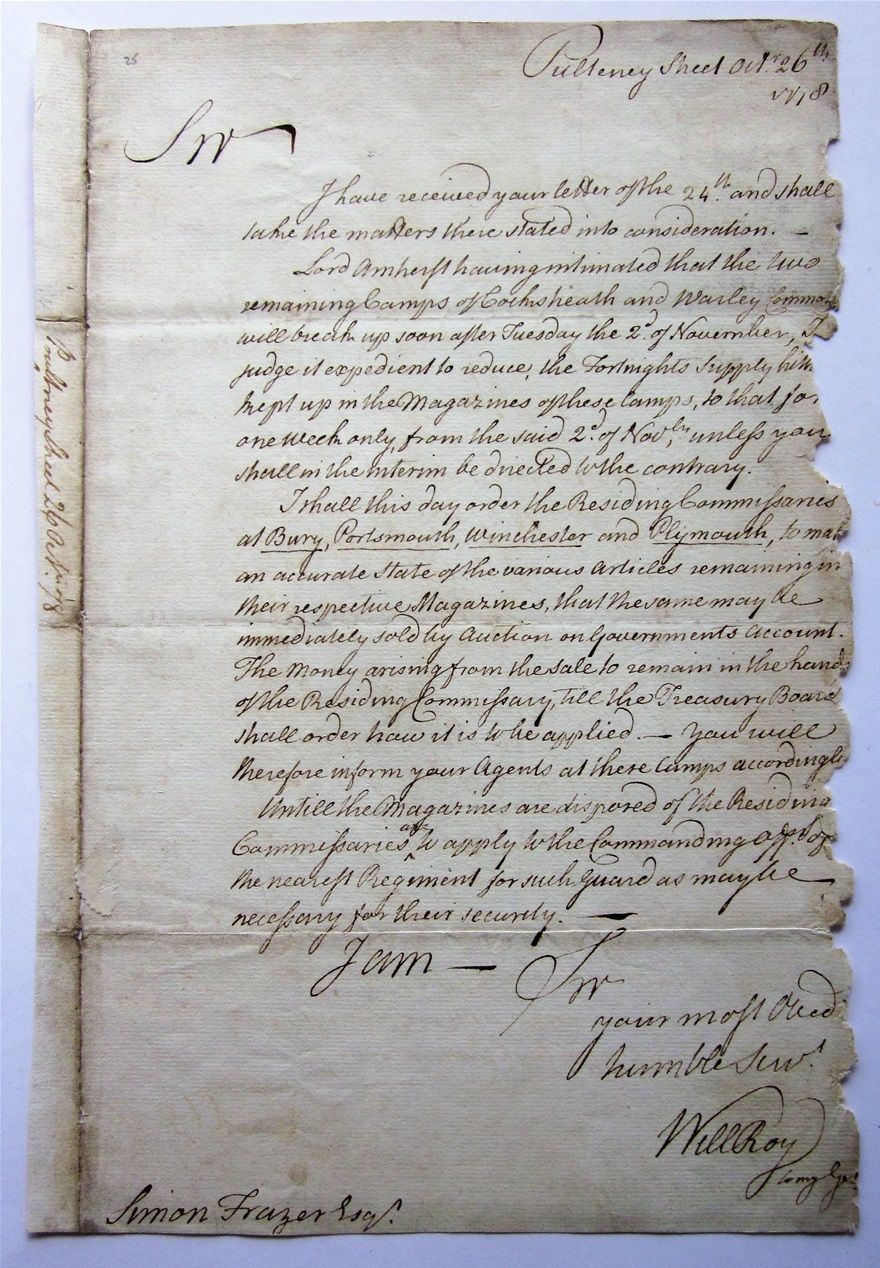 25
Pulteney Street Octr. 26th.
1778
Sir
I have received your letter of the 24th. and shall
take the matters there stated into consideration. —
Lord Amherst having intimated that the two
remaining Camps of Cocksheath and Warley Common
will break up soon after Tuesday the 2d. of November, I
judge it expedient to reduce, the Fortnights Supply hith
kept up in the Magazines of these Camps, to that for
one Week only, from the said 2d. of Novbr., unless you
shall in the interim be directed to the contrary.
I shall this day order the Residing Commissaries
at Bury, Portsmouth, Winchester and Plymouth, to mak
an accurate State of the various Articles remaining in
their respective Magazines, that the same may be
immediately sold by Auction on Governments Account.
The Money arising from the Sale to remain in the hands
of the Residing Commissary, till the Treasury Board
shall order how it is to be applied. — You will
therefore inform your Agents at these Camps accordingly
Untill the Magazines are disposed of the Residing
Commissaries are to apply to the Commanding Offr. of
the nearest Regiment for such Guard as may be
necessary for their security. —
I am — Sir
your most Obed
humble Servt.
Will Roy
Simon Frazer Esqr.
Pultney Street 26 Octr. 1778